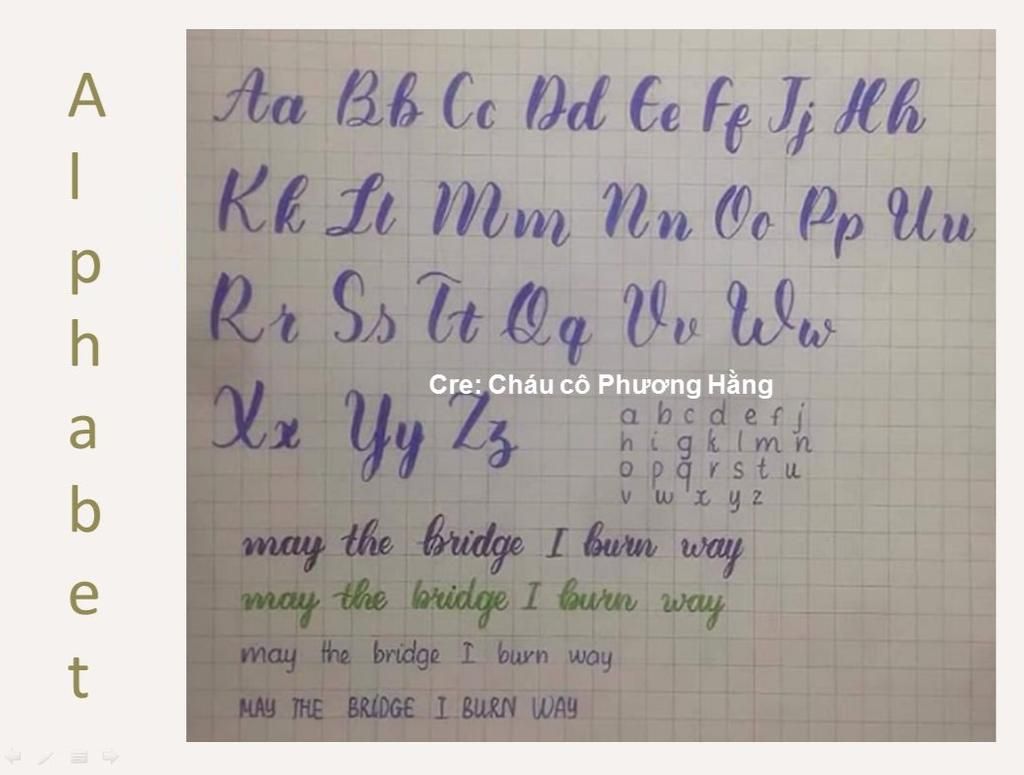 Alphabet
Aa Bb Cc Dd Ee Ff Jj Hh
Kk Ll Mm Nn Oo Pp Uu
Rr Ss Tt Qq Vv Ww
Cre: Cháu cô Phương Hằng
Xx Yy Zz
a b c d e f j
h i g k l m n
o p q r s t u
v w x y z
may the bridge I burn way
may the bridge I burn way
may the bridge I burn way
MAY THE BRIDGE I BURN WAY